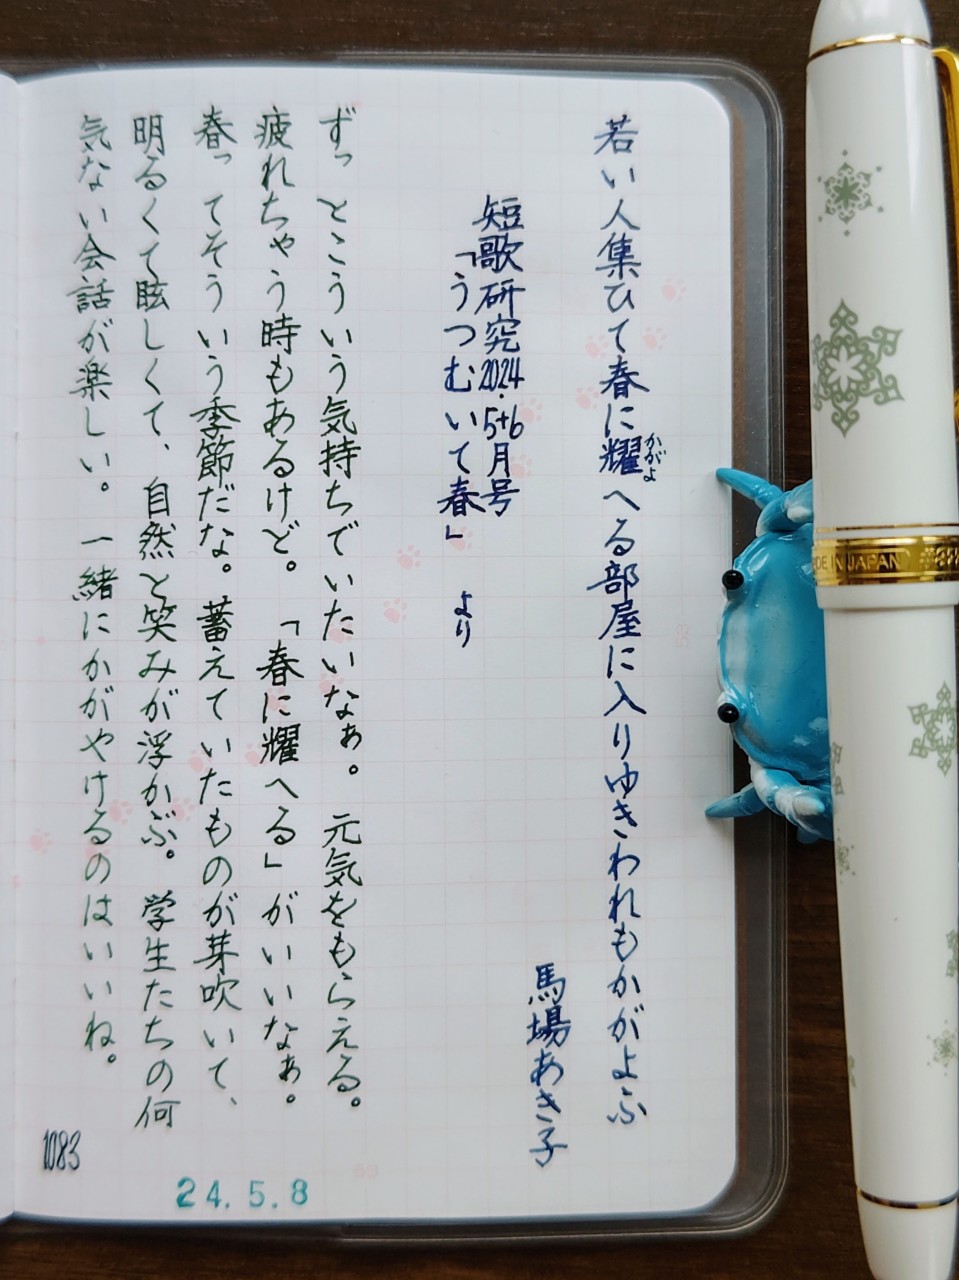 若い人集ひて春に耀へる部屋に入りゆきわれもかがよふ
かがよ
馬場あき子
短歌研究2024.5+6月号
「うつむいて春」より
ずっとこういう気持ちでいたいなぁ。元気をもらえる。
疲れちゃう時もあるけど。「春に耀へる」がいいなぁ。
春ってそういう季節だな。蓄えていたものが芽吹いて、
明るくて眩しくて、自然と笑みが浮かぶ。学生たちの何
気ない会話が楽しい。一緒にかがやけるのはいいね。
1083
24.5.8
DE IN JAPAN